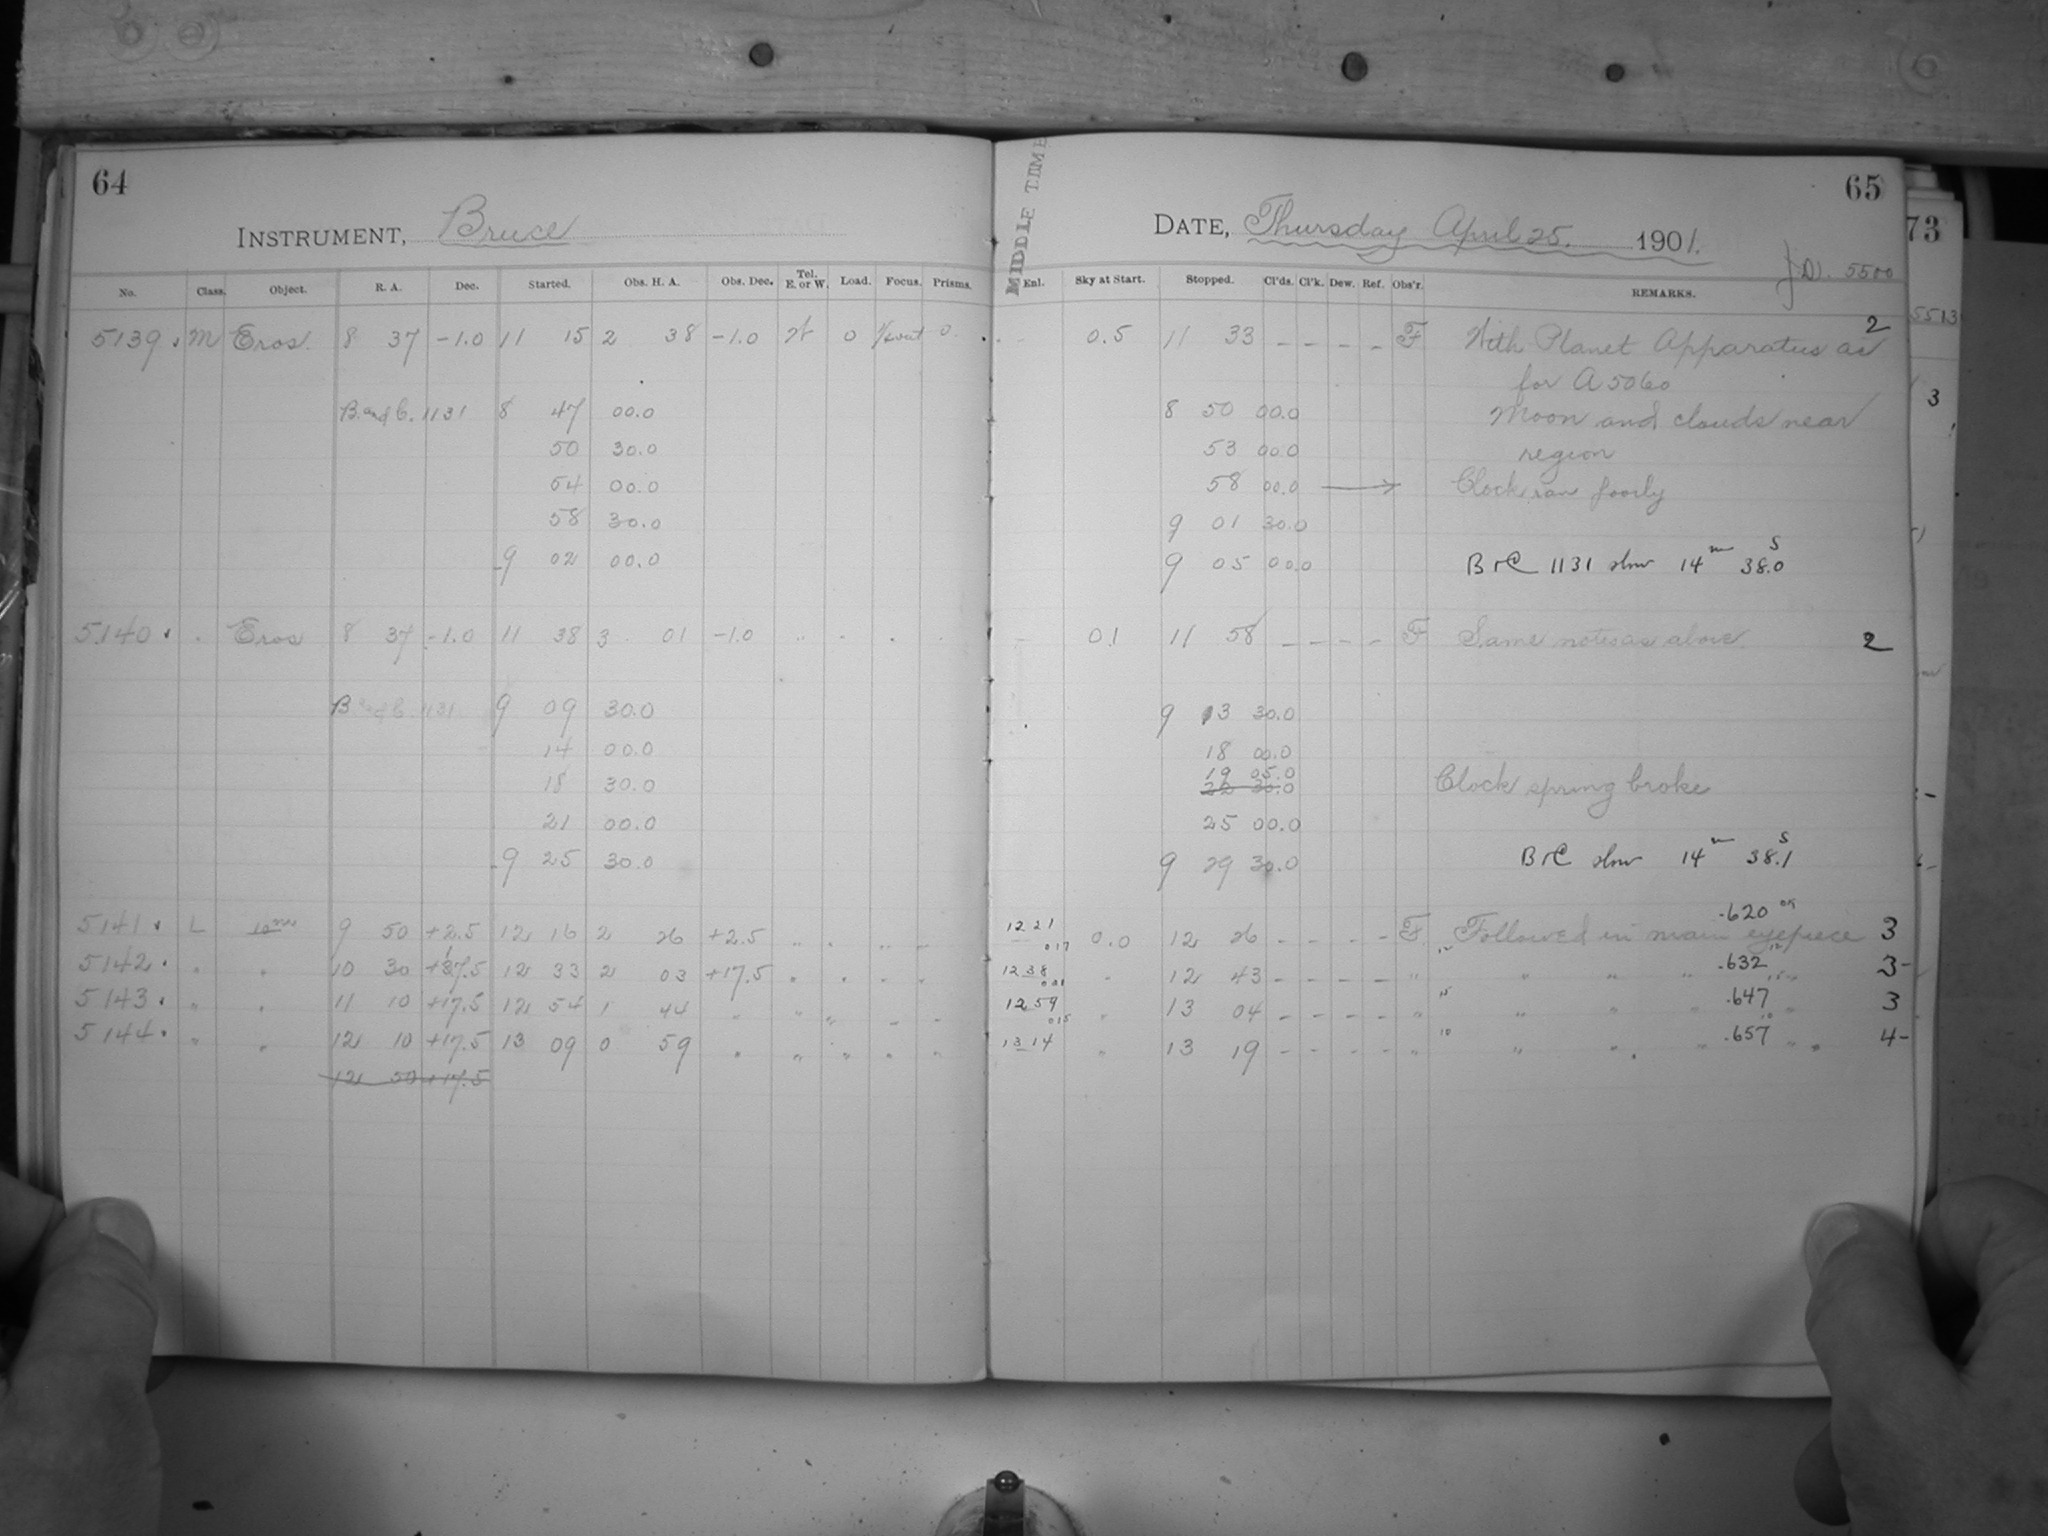 64
INSTRUMENT, Bruce
No. Class. Object. R. A. Dec. Started. Obs. H. A. Obs. Dec. Tel. E. or W. Load. Focus. Prisms.
5139 M Eros. 8 37 -1.0 11 15 2 38 -1.0 W 0 0
B. and C. 1131 8 47 00.0
50 30.0
54 00.0
58 30.0
9 02 00.0
5140 " Eros 8 37 -1.0 11 38 3 01 -1.0 " " " "
B and C. 1131 9 09 30.0
14 00.0
18 30.0
21 00.0
9 25 30.0
5141 L 10m 9 50 +2.5 12 16 2 26 +2.5 " " " "
5142 " " 10 30 +17.5 12 33 2 03 +17.5 " " " "
5143 " " 11 10 +17.5 12 54 1 44 " " " " "
5144 " " 12 10 +17.5 13 09 0 59 " " " " "
12 50 +17.5
MIDDLE TIME
65
DATE, Thursday April 25. 1901.
J.D. 5500
Enl. Sky at Start. Stopped. Cl'ds. Cl'k. Dew. Ref. Obs'r. REMARKS.
- 0.5 11 33 - - - - F With Planet Apparatus as 2
for A 5060
8 50 00.0 Moon and clouds near
53 00.0 region
58 00.0 → Clock ran poorly
9 01 30.0
9 05 00.0 B & C 1131 slow 14m 38.0s
- 0.1 11 58 - - - - F Same notes as above. 2
9 13 30.0
18 00.0
19 05.0
22 30.0 Clock spring broke
25 00.0
9 29 30.0 B & C slow 14m 38.1s
12 21 017 0.0 12 26 - - - - F Followed in main eyepiece .620 3
12 38 021 " 12 43 - - - - " " " " .632 " 3-
12 59 015 " 13 04 - - - - " " " " .647 " 3
13 14 " 13 19 - - - - " " " " .657 " 4-
73
5513
3